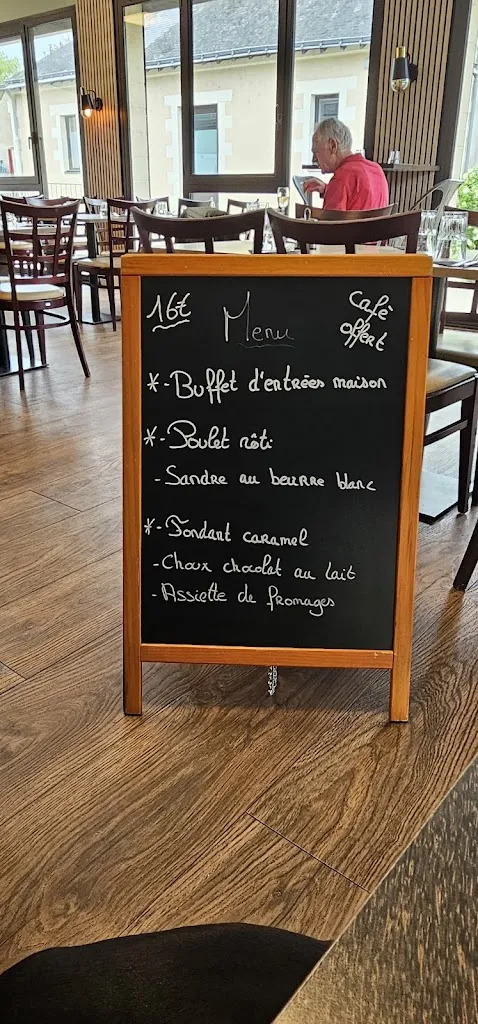 16€
Menu
Café
offert
*-Buffet d'entrées maison
*-Poulet rôti
-Sandre au beurre blanc
*-Fondant caramel
-Choux chocolat au lait
-Assiette de fromages